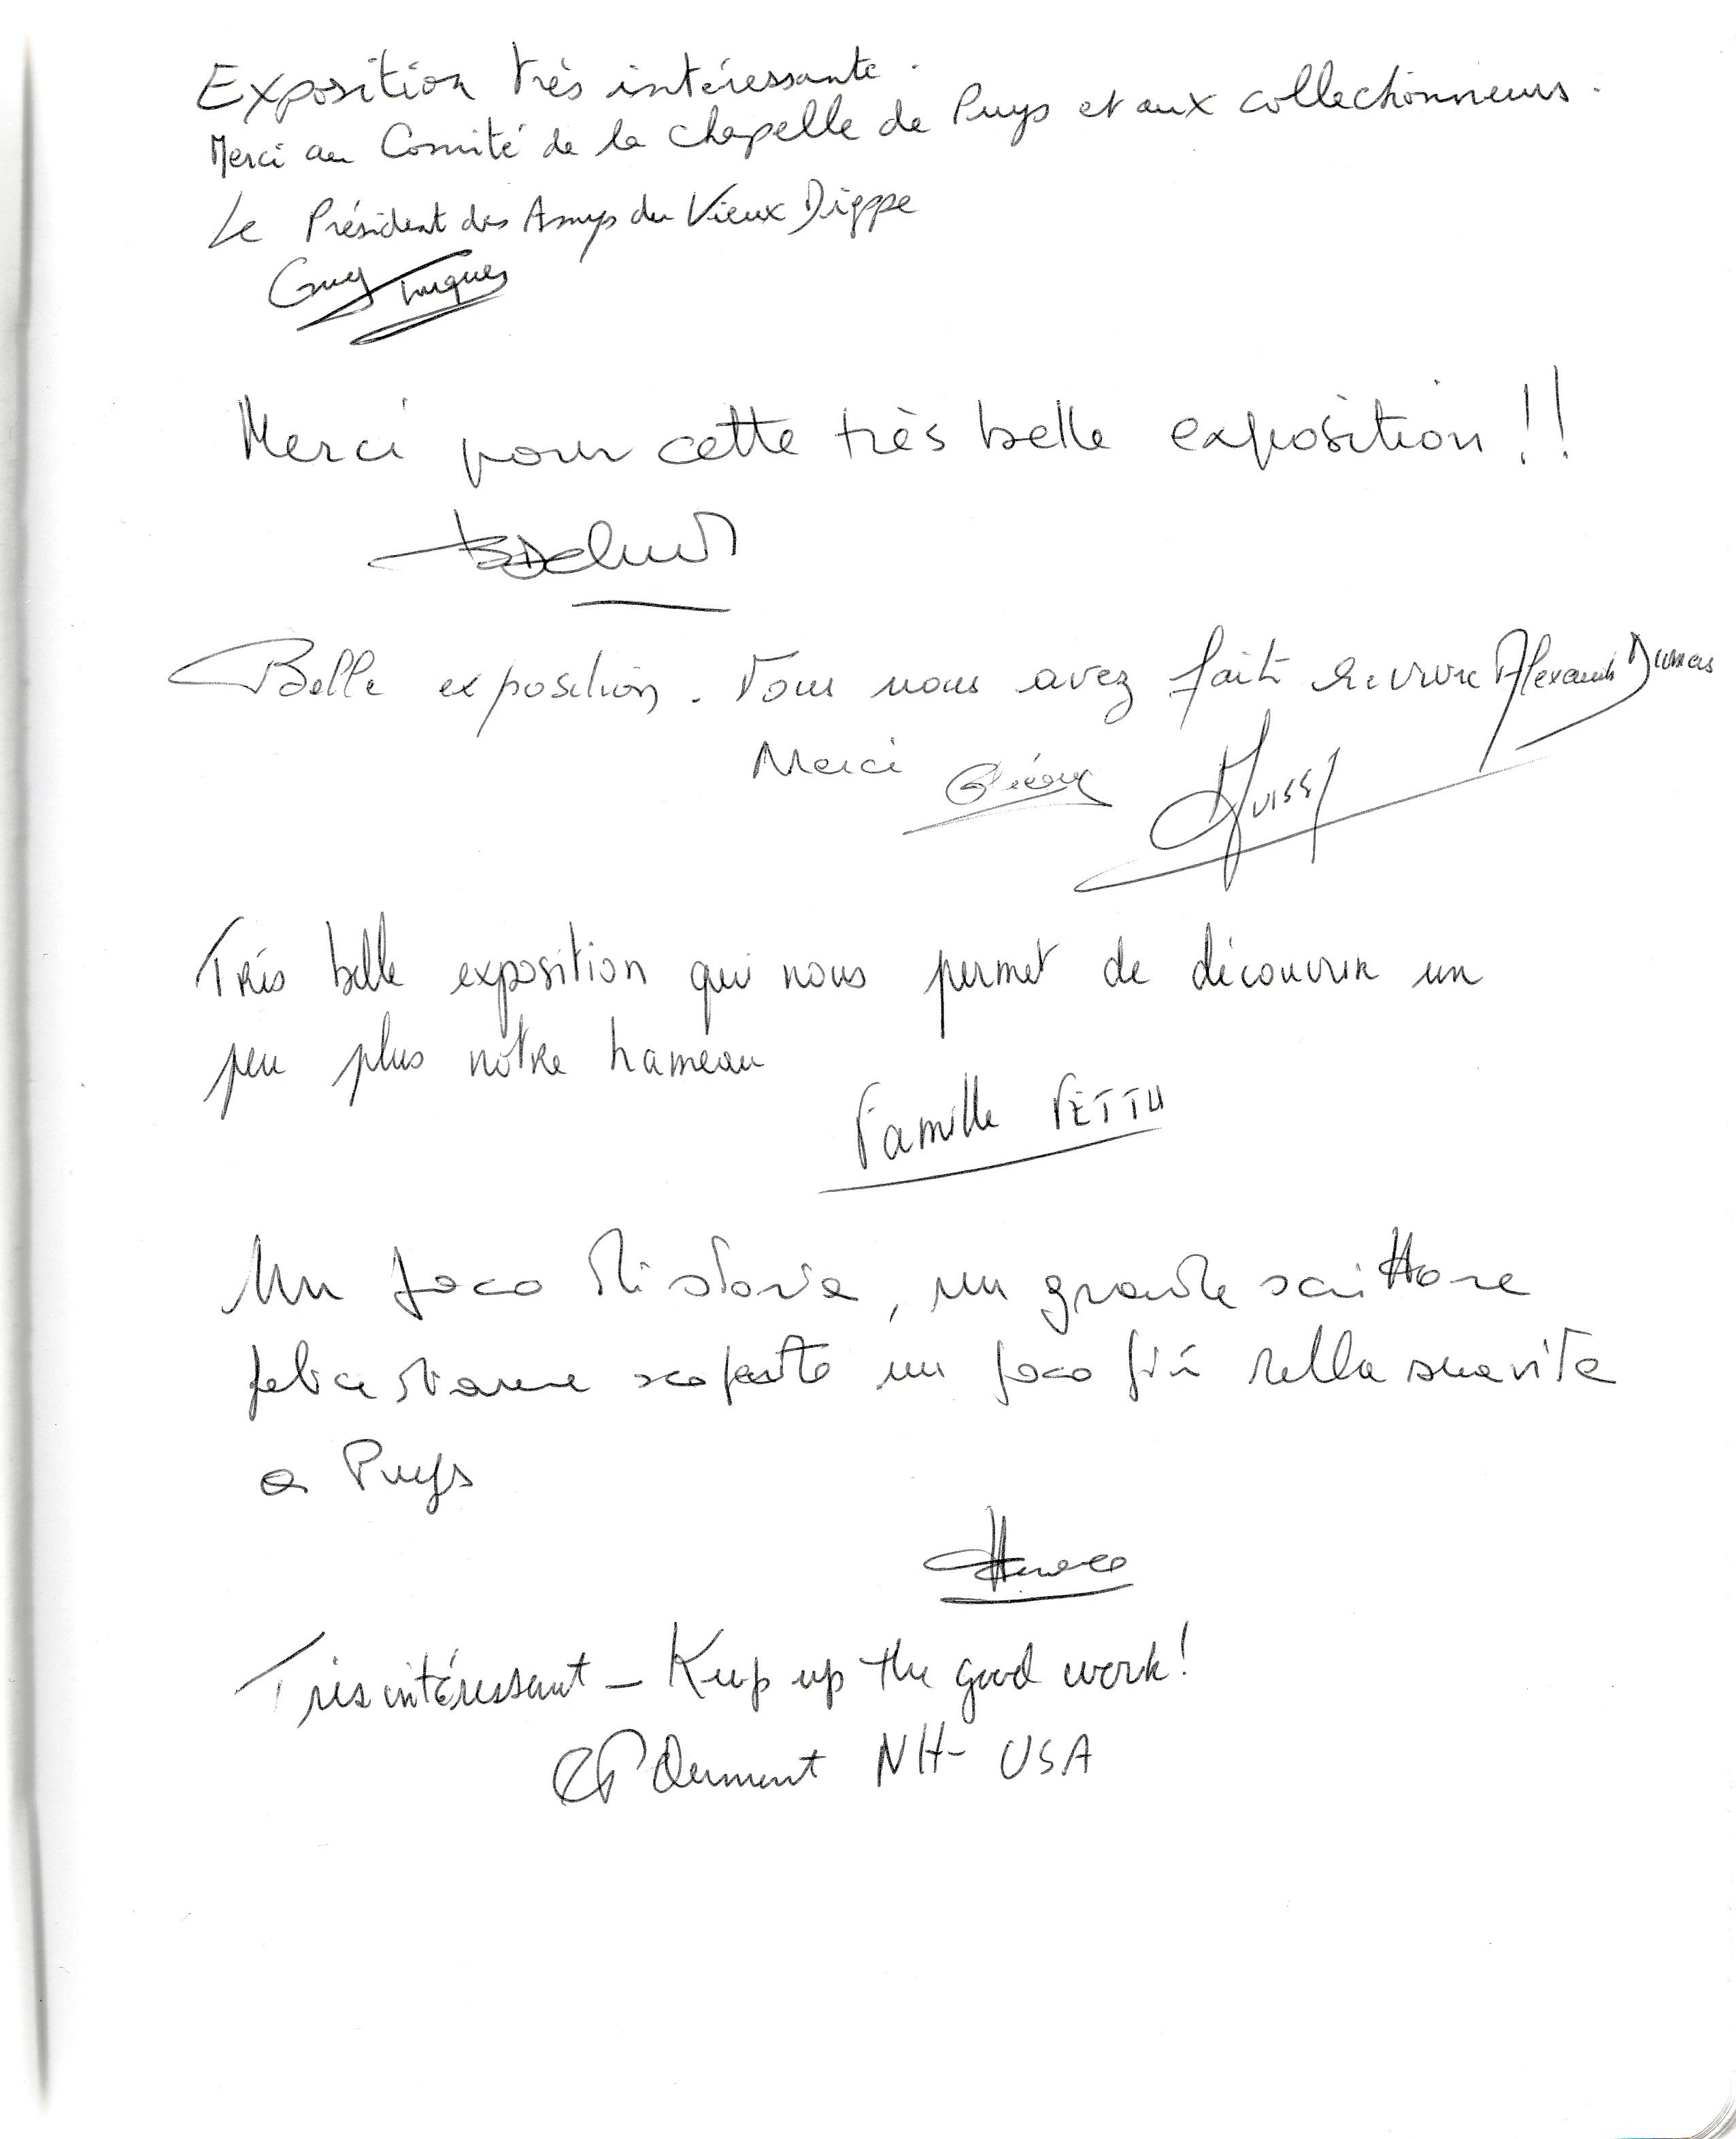 Exposition très intéressante.
Merci au Comité de la chapelle de Puys et aux collectionneurs.
Le Président des Amys du Vieux Dieppe
Guy
Merci pour cette très belle exposition !!
Belle exposition. Vous nous avez fait revivre Alexandre Dumas
Merci
Très belle exposition qui nous permet de découvrir un
peu plus notre hameau
Famille PETTU
Un poco di storia, un grande scrittore
felice scoperto un poco più della sua vita
a Puys
Très intéressant – Keep up the good work!
NH- USA